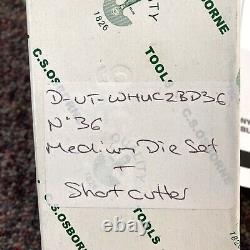 1826
CITY
TOOLS
C.S.OSBORNE
D-UT-WHUC2BD36
N°36
Medium Die Set
+
Short cutter
C.S.OSBORNE
C.S.OSBORNE
TOOLS